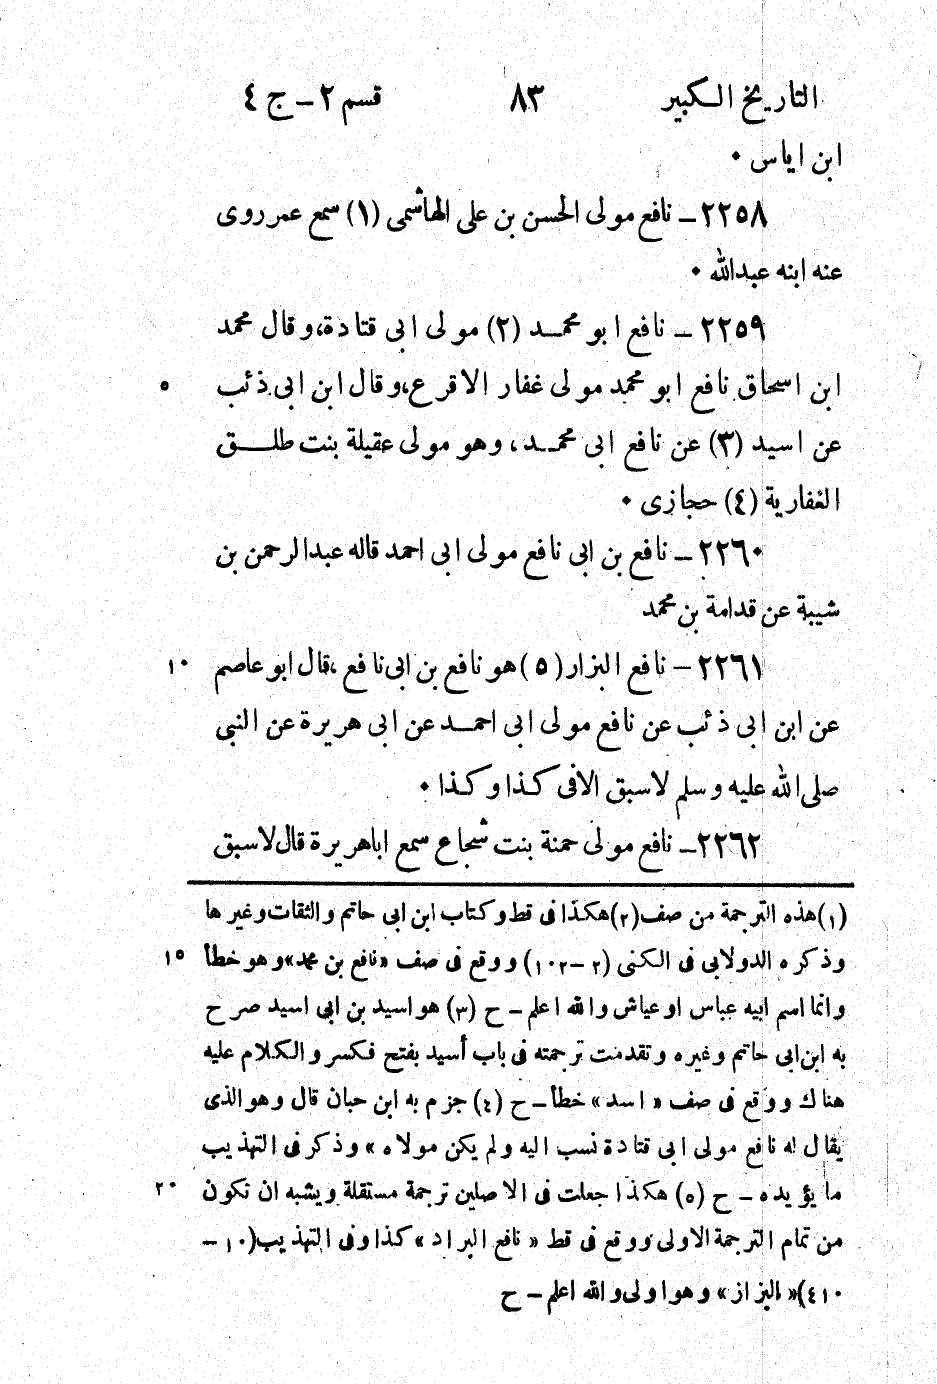 التاريخ الكبير ٨٣ قسم ٢ - ج ٤
ابن اياس ٠
٢٢٥٨ - نافع مولى الحسن بن على الهاشمى (١) سمع عمر روى
عنه ابنه عبدالله ٠
٢٢٥٩ - نافع ابو محمد (٢) مولى ابى قتادة، وقال محمد
ابن اسحاق نافع ابو محمد مولى غفار الاقرع، وقال ابن ابى ذئب ٥
عن اسيد (٣) عن نافع ابى محمد، وهو مولى عقيلة بنت طلق
الغفارية (٤) حجازى ٠
٢٢٦٠ - نافع بن ابى نافع مولى ابى احمد قاله عبدالرحمن بن
شيبة عن قدامة بن محمد
٢٢٦١ - نافع البزار (٥) هو نافع بن ابى نافع، قال ابو عاصم ١٠
عن ابن ابى ذئب عن نافع مولى ابى احمد عن ابى هريرة عن النبى
صلى الله عليه وسلم لاسبق الافى كذا وكذا ٠
٢٢٦٢ - نافع مولى حمنة بنت شجاع سمع اباهريرة قال لاسبق
(١) هذه الترجمة من صف (٢) هكذا فى قط وكتاب ابن ابى حاتم والثقات وغيرها
وذكره الدولابى فى الكنى (٢ - ١٠٢) ووقع فى صف «نافع بن محمد» وهو خطأ ١٥
وانما اسم ابيه عباس او عياش والله اعلم - ح (٣) هو اسيد بن ابى اسيد صرح
به ابن ابى حاتم وغيره وتقدمت ترجمته فى باب أسيد بفتح فكسر والكلام عليه
هناك ووقع فى صف «اسد» خطأ - ح (٤) جزم به ابن حبان قال وهو الذى
يقال له نافع مولى ابى قتادة نسب اليه ولم يكن مولاه» وذكر فى التهذيب
ما يؤيده - ح (٥) هكذا جعلت فى الاصلين ترجمة مستقلة ويشبه ان تكون ٢٠
من تمام الترجمة الاولى ووقع فى قط «نافع البراد» كذا وفى التهذيب (١٠ -
٤١٠) «البزاز» وهو اولى والله اعلم - ح